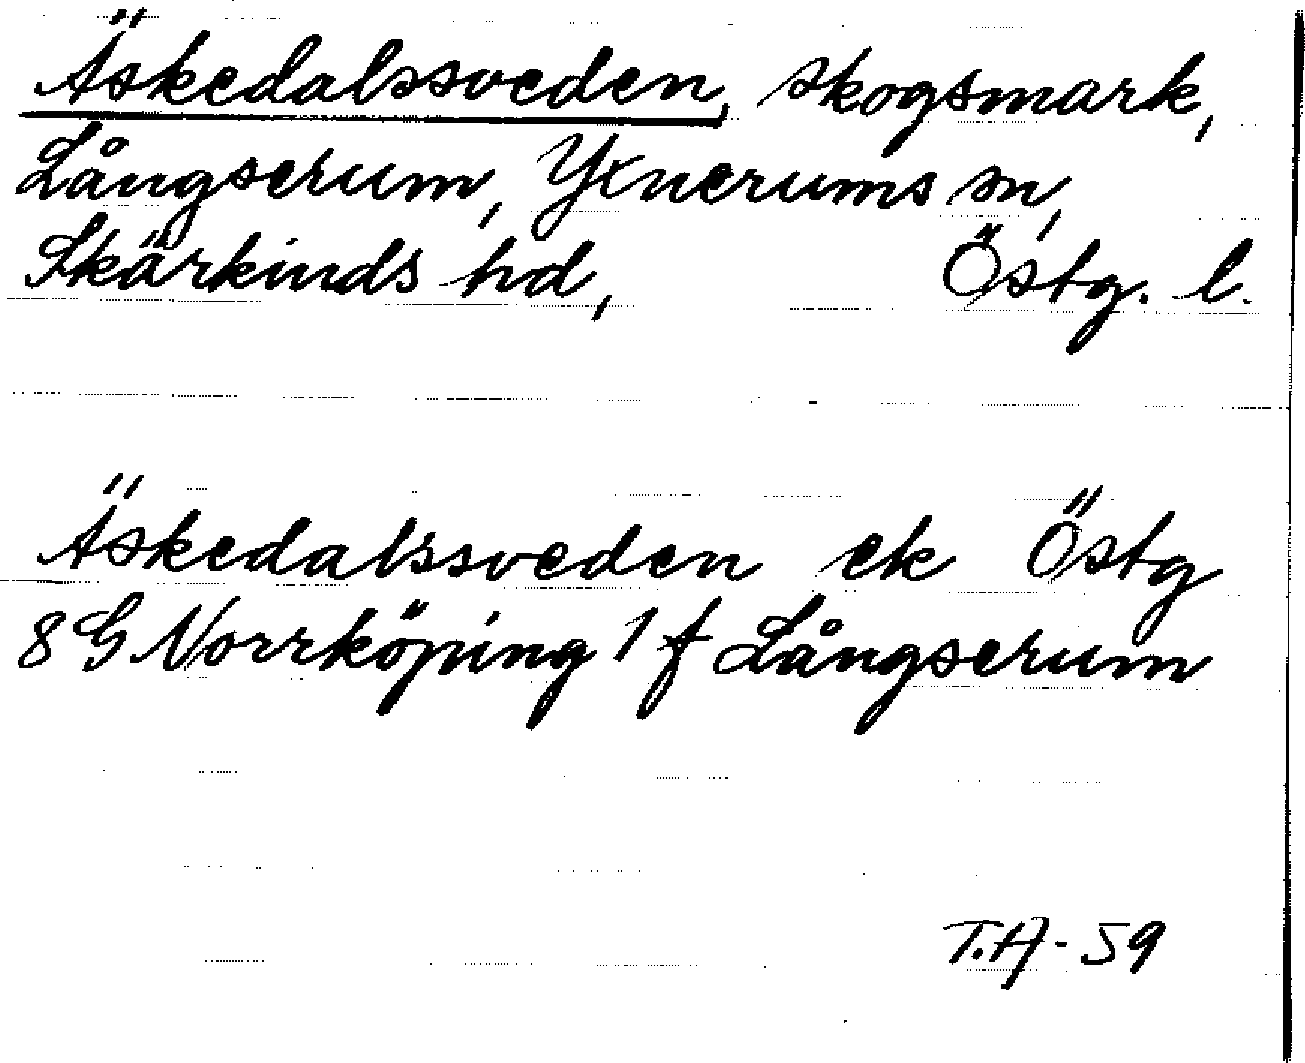 Äskedalssveden, skogsmark,
Långserum, Yxnerums sn,
Skärkinds hd, Östg. l.
Äskedalssveden ek Östg
8 G Norrköping 1 f Långserum
T.A-59